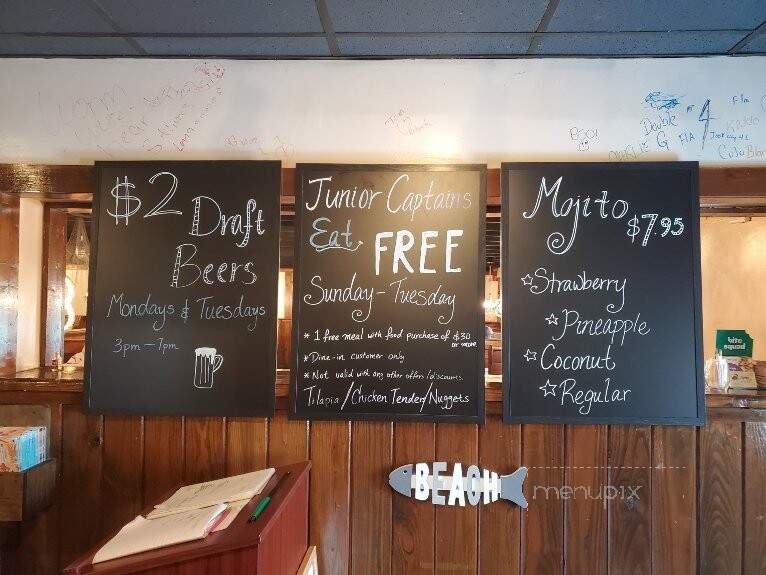 $2 Draft
Beers
Mondays & Tuesdays
3pm - 7pm
Junior Captains
Eat FREE
Sunday - Tuesday
* 1 free meal with food purchase of $30
or more
* Dine-in customer only
* Not valid with any other offers/discounts.
Tilapia/Chicken Tender/Nuggets
Mojito
$7.95
☆Strawberry
☆Pineapple
☆Coconut
☆Regular
Double
G
4
Fla
bite
squad
BEACH
menupix